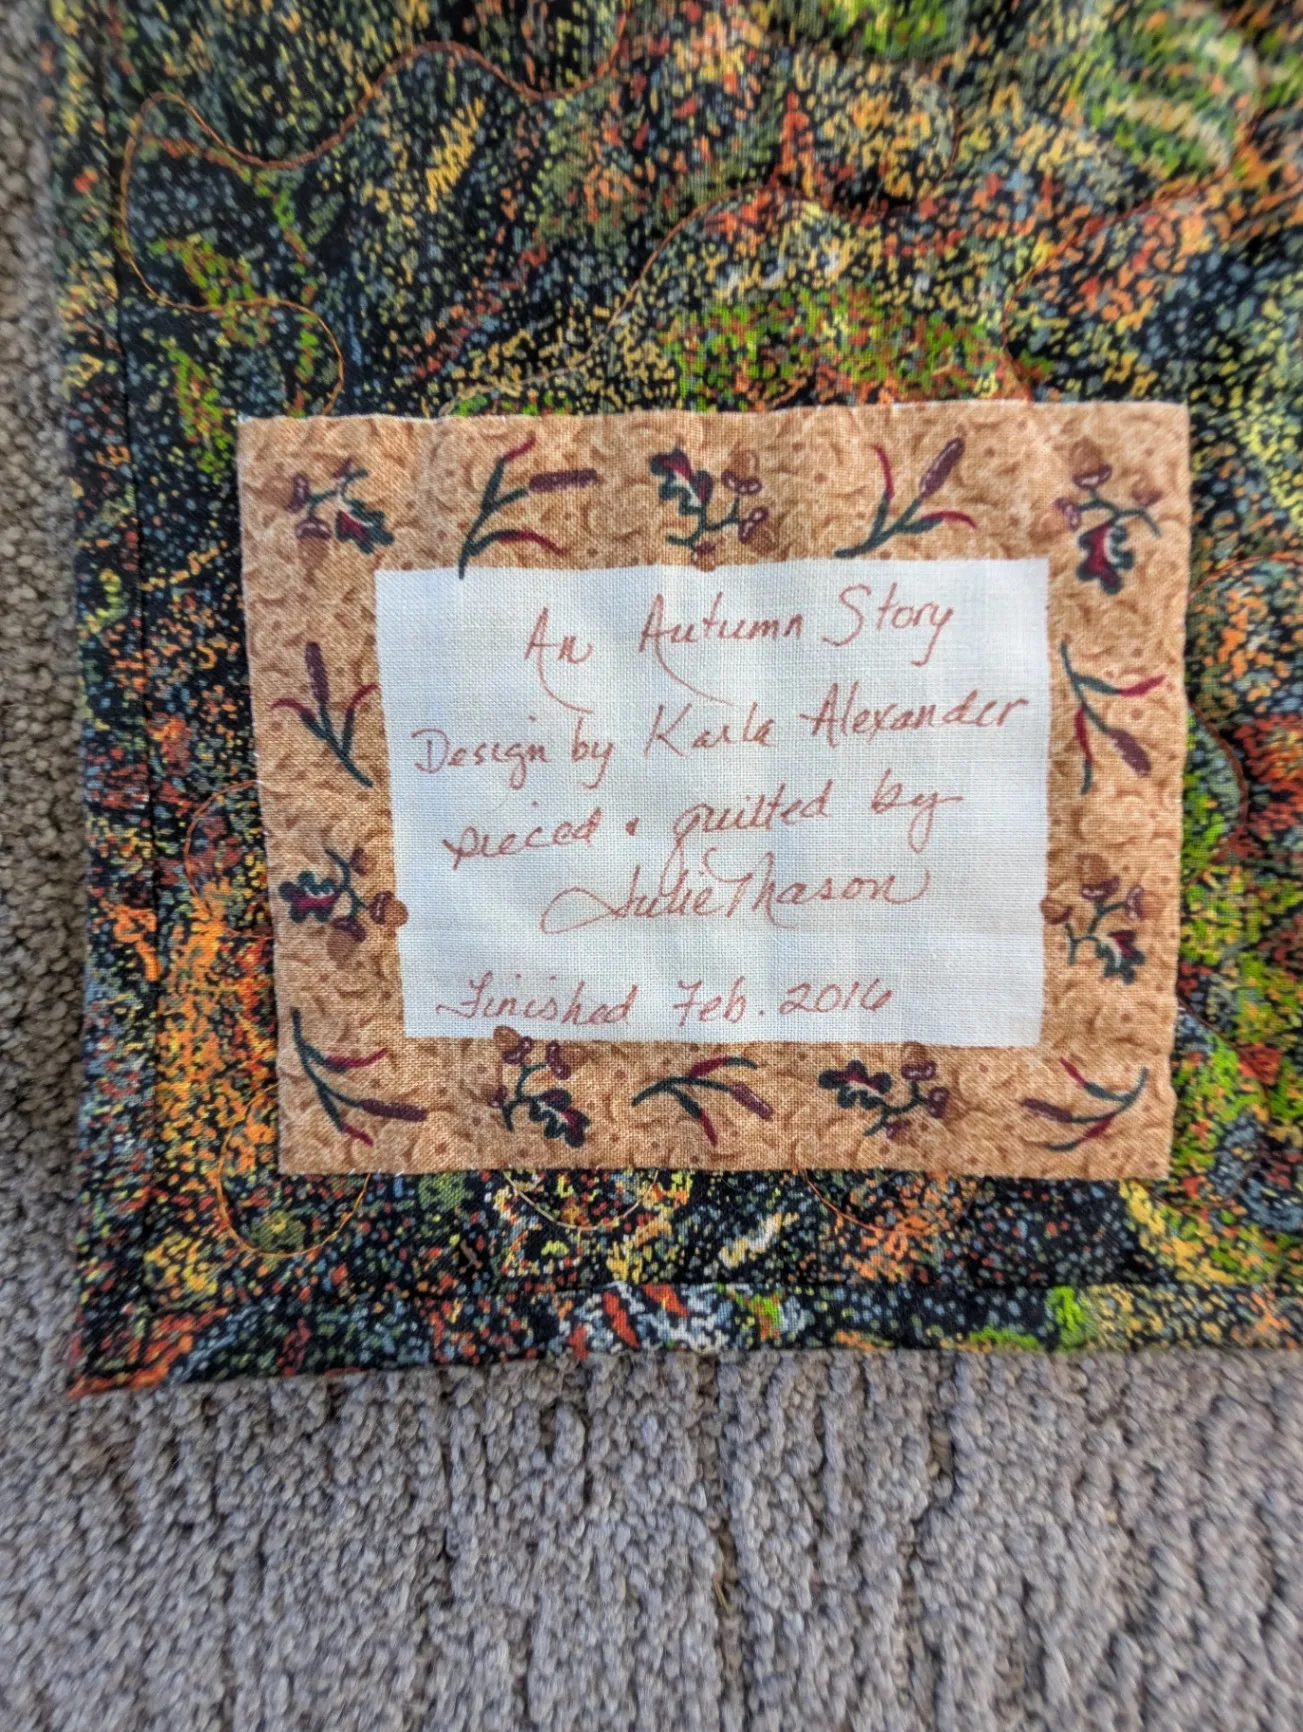 An Autumn Story
Design by Karla Alexander
pieced & quilted by
Julie Mason
Finished Feb. 2016